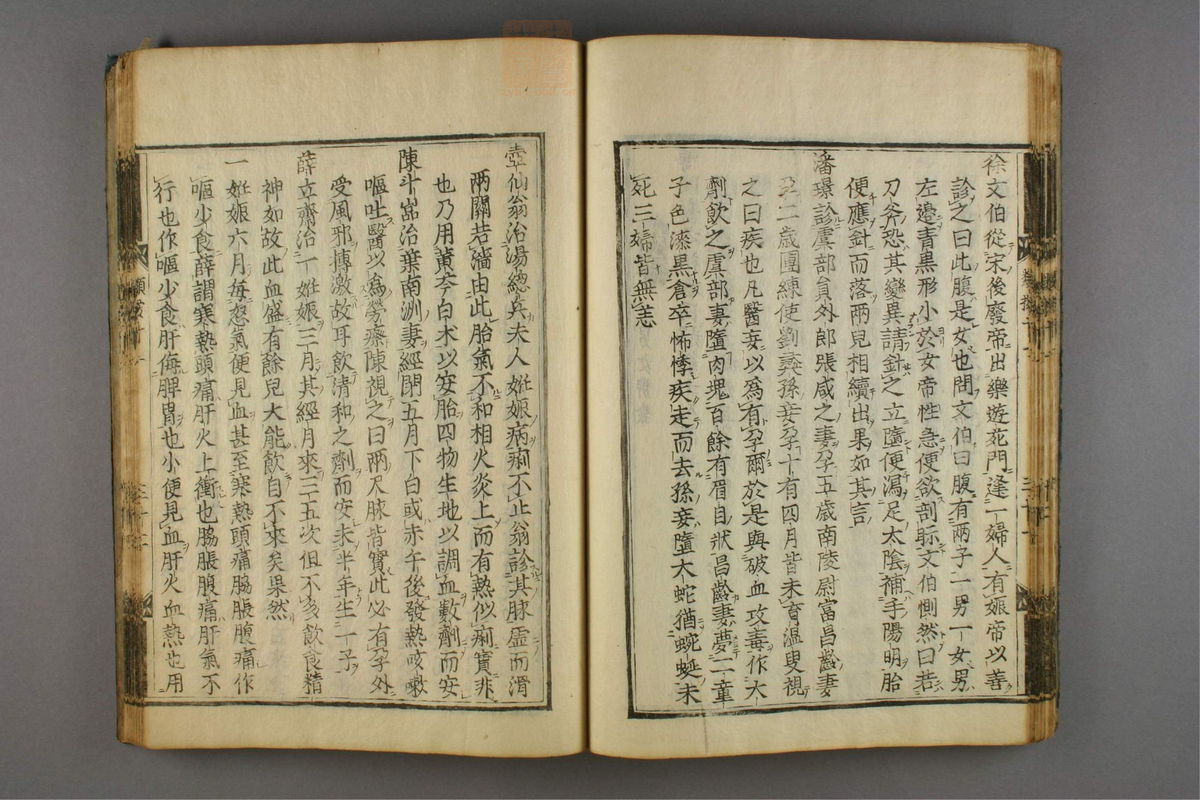 徐文伯從宋後廢帝出樂遊苑門逢一婦人有娠帝以善
診之曰此腹是女也問文伯曰腹有兩子一男一女男
左邊青黑形小於女帝性急便欲剖視文伯惻然曰若
刀斧恐其變異請針之立墮便瀉足太陰補手陽明胎
便應針而落兩兒相續出果如其言
潘璟診虞部員外郎張咸之妻孕五歲南陵尉富昌齡妻
孕二歲團練使劉彝孫妾孕十有四月皆未育溫叟視
之曰疾也凡醫妄以為有孕爾於是與破血攻毒作大
劑飲之虞部妻墮肉塊百餘有眉目狀昌齡妻夢二童
子色漆黑倉卒怖悸疾走而去孫妾墮大蛇猶蜿蜒未
死三婦皆無恙
壺仙翁治湯總兵夫人姙娠病痢不止翁診其脉虛而滑
兩關若濇由此胎氣不和相火炎上而有熱似痢實非
也乃用黃芩白朮以安胎四物生地以調血數劑而安
陳斗嵓治葉南洲妻經閉五月下白或赤午後發熱咳嗽
嘔吐醫以為勞瘵陳視之曰兩尺脉皆實此必有孕外
受風邪搏激故耳飲清和之劑而安未半年生一子
薛立齋治一姙娠三月其經月來三五次但不多飲食精
神如故此血盛有餘兒大能飲自不來矣果然
一姙娠六月每怒氣便見血甚至寒熱頭痛脇脹腹痛作
嘔少食薛謂寒熱頭痛肝火上衝也脇脹腹痛肝氣不
行也作嘔少食肝侮脾胃也小便見血肝火血熱也用